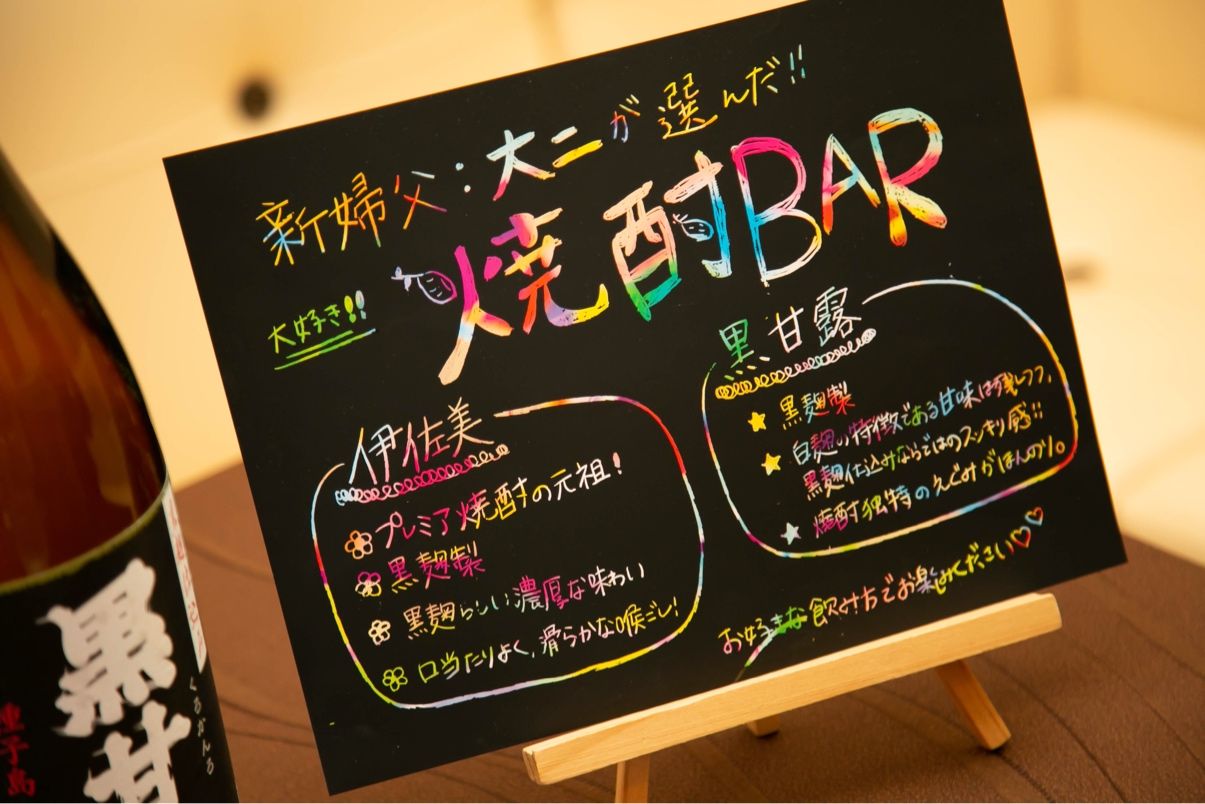 新婦父:大二が選んだ!!
大好き!!
焼酎BAR
伊佐美
プレミア焼酎の元祖!
黒麹製
黒麹らしい濃厚な味わい
口当たりよく、滑らかな喉ごし!
黒甘露
黒麹製
白麹の特徴である甘味は残しつつ、
黒麹仕込みならではのスッキリ感!!
焼酎独特のえぐみがほんのり。
お好きな飲み方でお楽しみください♡♡
黒甘
くろかんろ
種子島